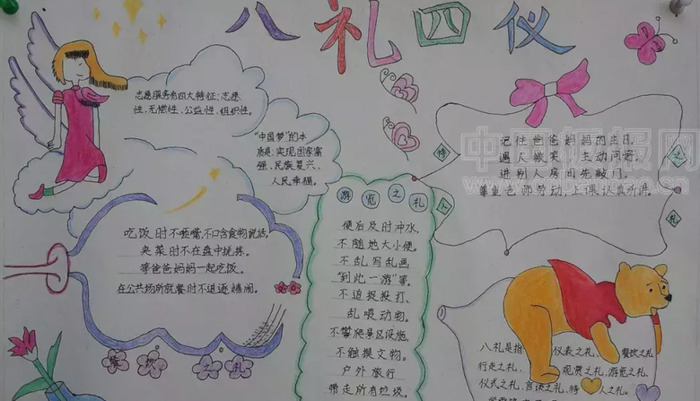 八礼四仪
志愿服务有四大特征：志愿
性、无偿性、公益性、组织性。
"中国梦"的本
质是：实现国家富
强、民族复兴、
人民幸福。
待
人
之
礼
记住爸爸妈妈的生日。
遇人微笑，主动问好。
进别人房间先敲门。
上课认真听讲。
游览之礼
便后及时冲水，
不随地大小便。
不乱写乱画
"到此一游"等。
不追捉投打、
乱喂动物。
不攀爬景区设施、
不触摸文物。
户外旅行
带走所有垃圾。
吃饭时不咂嘴，不口含食物说话。
夹菜时不在盘中挑拣。
等爸爸妈妈一起吃饭。
在公共场所就餐时不追逐嬉闹。
餐饮之礼
八礼是指：仪表之礼、餐饮之礼
行走之礼、观赏之礼、游览之礼
仪式之礼、言谈之礼、待人之礼